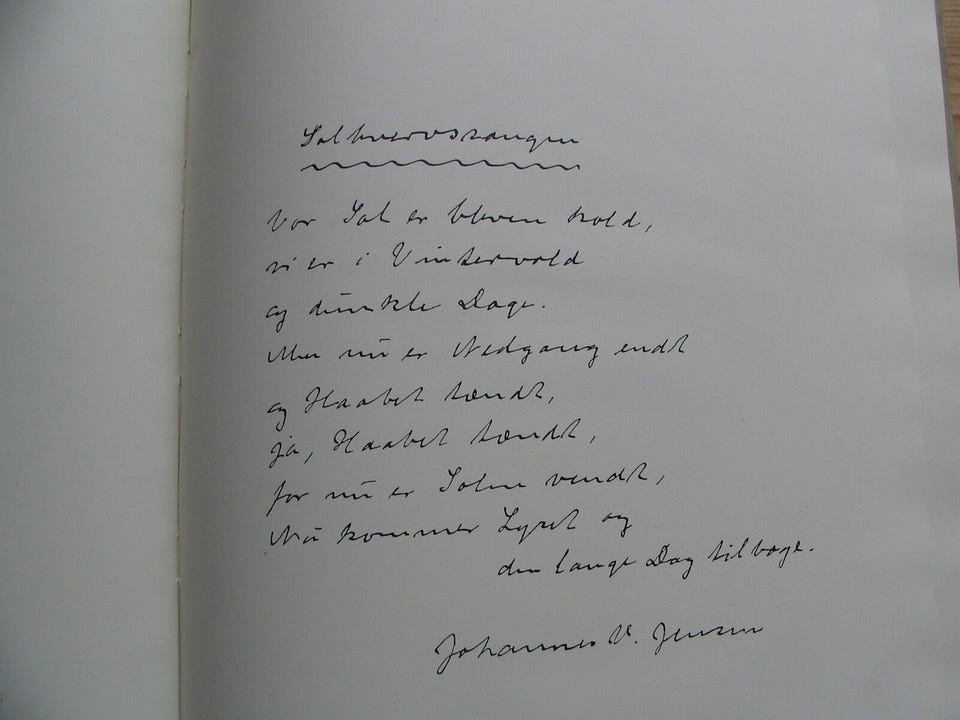 Solhvervssangen
Vor Sol er bleven kold,
vi er i Vintervold
og dunkle Dage.
Men nu er Nedgang endt
og Haabet tændt,
ja, Haabet tændt,
for nu er Solen vendt,
Nu kommer Lyset og
den lange Dag tilbage.
Johannes V. Jensen